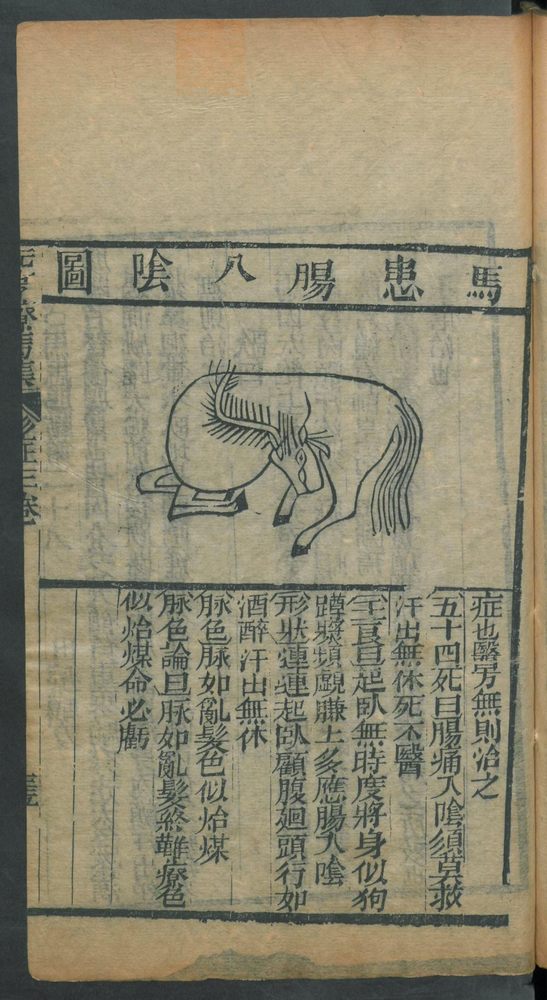 馬患腸入陰圖
症也醫方無則治之
五十四死曰腸痛入陰須莫救
汗出無休死不醫
王言曰起臥無時度將身似狗
蹲漿頻覷膁上多應腸入陰
形狀連連起臥顧腹廻頭行如
酒醉汗出無休
脉色脉如亂髮色似炲煤
脉色論曰脉如亂髮終難療色
似炲煤命必虧
元亨療馬集
症三卷